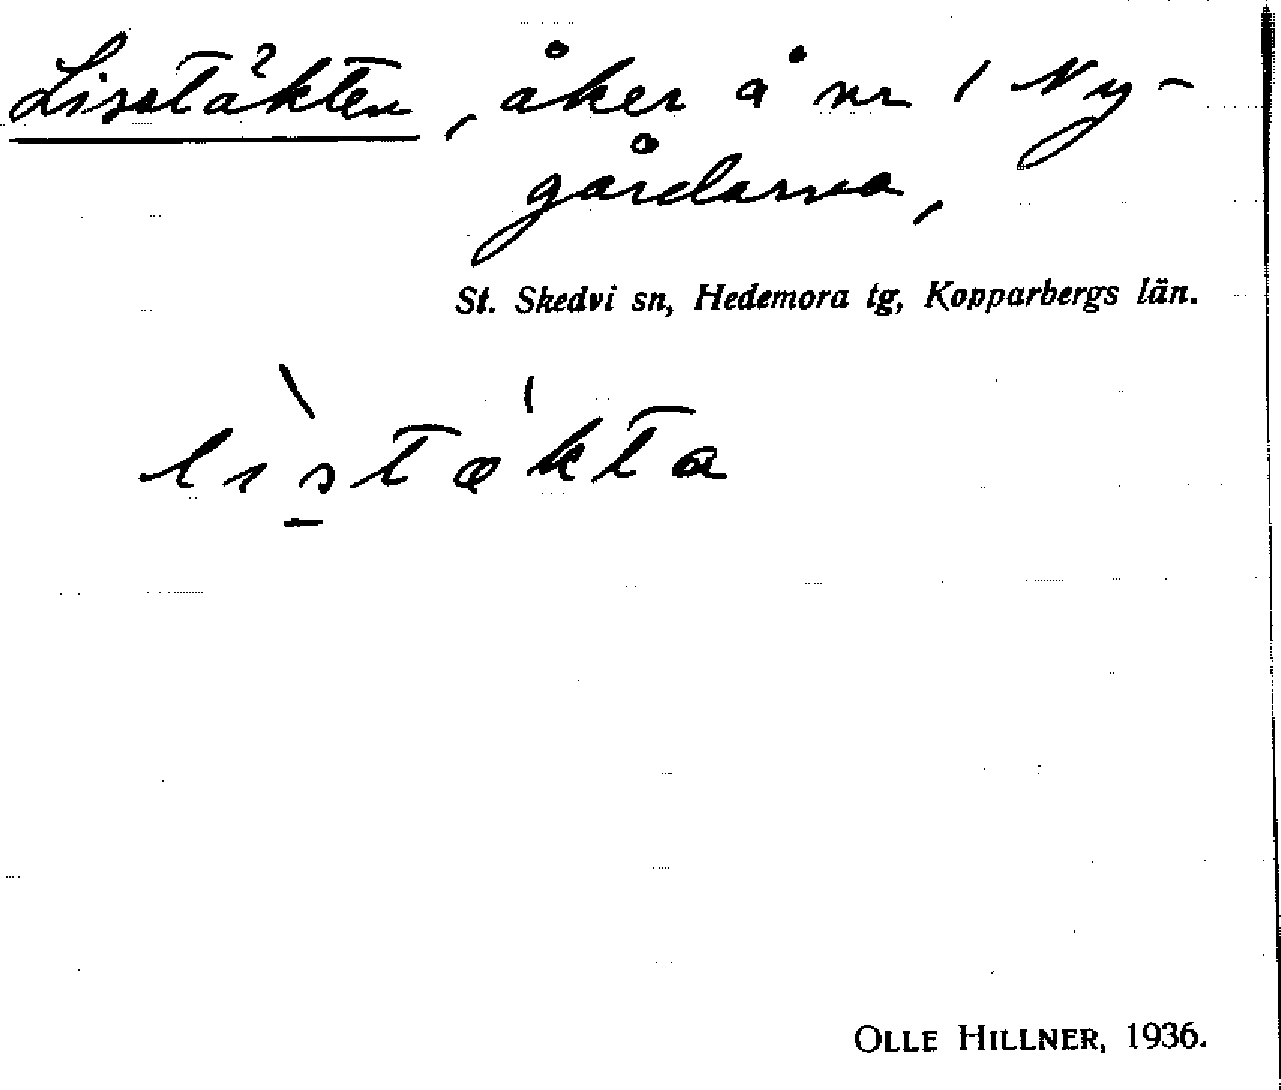 Lisstäkten, åker å nr 1 Ny-
gårdarna,
St. Skedvi sn, Hedemora tg, Kopparbergs län.
lìstæ̍kta
OLLE HILLNER, 1936.